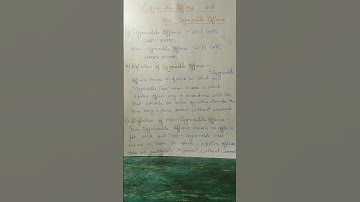 Cognizable Offence and
Non-Cognizable Offence
1) Cognizable Offence - 2(c) CrPC
Non-Cognizable Offence - 2(l) CrPC
2) Definition of Cognizable Offence -
"Cognizable
offence means an offence for which and
"Cognizable Case" means a case in which,
a police officer may in accordance with the
First Schedule or under any other law for the
time being in force, arrest without warrant
3) Definition of Non-Cognizable Offence -
Non-Cognizable Offence means an offence
for which and "non-cognizable case"
means a case in which, a police officer
has no authority to arrest without warrant